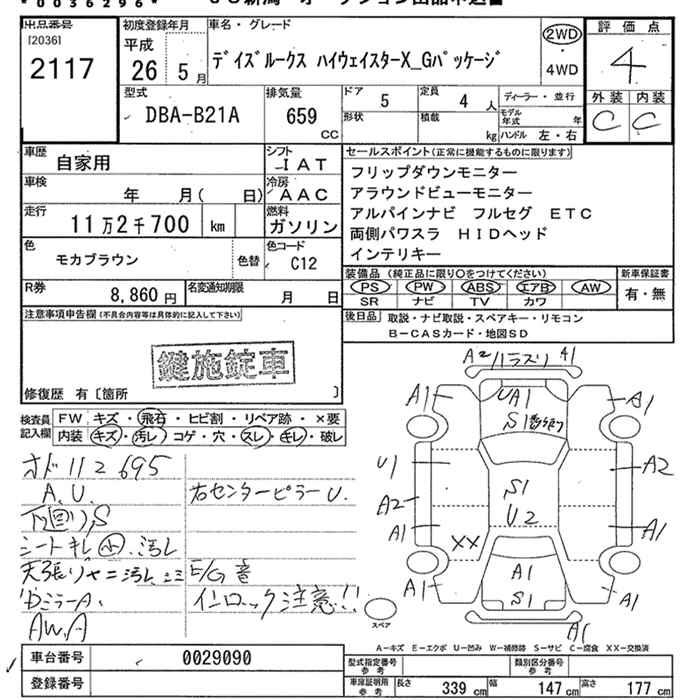 * 0036296 *
出品番号
[2036]
2117
初度登録年月
平成
26 年 5 月
車名・グレード
デイズルークス ハイウェイスターX_Gパッケージ
2WD
・
4WD
評価点
4
外装 内装
C C
型式
DBA-B21A
排気量
659
CC
ドア
5
定員
4 人
ディーラー・並行
形状
積載
kg
モデル年式 年
ハンドル 左・右
車歴
自家用
シフト
IAT
車検
年 月( 日)
冷房
AAC
走行
11万2千700 km
燃料
ガソリン
色
モカブラウン
色替
色コード
C12
R券
8,860 円
名変通知期限
月 日
セールスポイント(正常に機能するものに限ります)
フリップダウンモニター
アラウンドビューモニター
アルパインナビ フルセグ ETC
両側パワスラ HIDヘッド
インテリキー
装備品(純正品に限り○をつけてください)
PS PW ABS エアB AW
SR ナビ TV カワ
新車保証書
有・無
後日品 取説・ナビ取説・スペアキー・リモコン
B-CASカード・地図SD
注意事項申告欄(不具合内容等は具体的に記入して下さい)
鍵施錠車
修復歴 有〔箇所 〕
検査員記入欄
FW キズ・飛石・ヒビ割・リペア跡・×要
内装 キズ・汚レ・コゲ・穴・スレ・キレ・破レ
オド112695
A、U、
下回り S
シートキレ小、汚レ
Dミラー A、
AW、A
右センターピラーU、
E/G音
インロック注意!!
A2 A1
A1 UA1 A1
S1
U1 A2
A2 S1
A1 U2 A1
XX
A1 A1 A1
S1
A1
スペア
A-キズ E-エクボ U-凹み W-補修跡 S-サビ C-腐食 XX-交換済
車台番号 0029090
登録番号
型式指定番号 参考
類別区分番号 参考
車庫証明用 参考 長さ 339 cm 幅 147 cm 高さ 177 cm